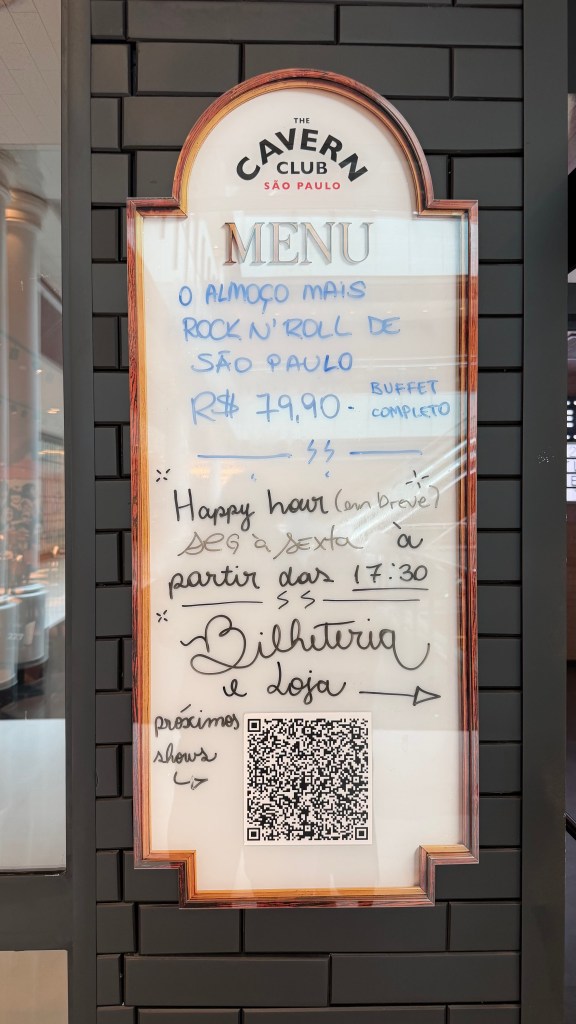 THE
CAVERN
CLUB
SÃO PAULO
MENU
O ALMOÇO MAIS
ROCK N' ROLL DE
SÃO PAULO
R$ 79,90. BUFFET
COMPLETO
Happy hour (em breve)
SEG à sexta à
partir das 17:30
Bilheteria
e Loja
próximos
shows